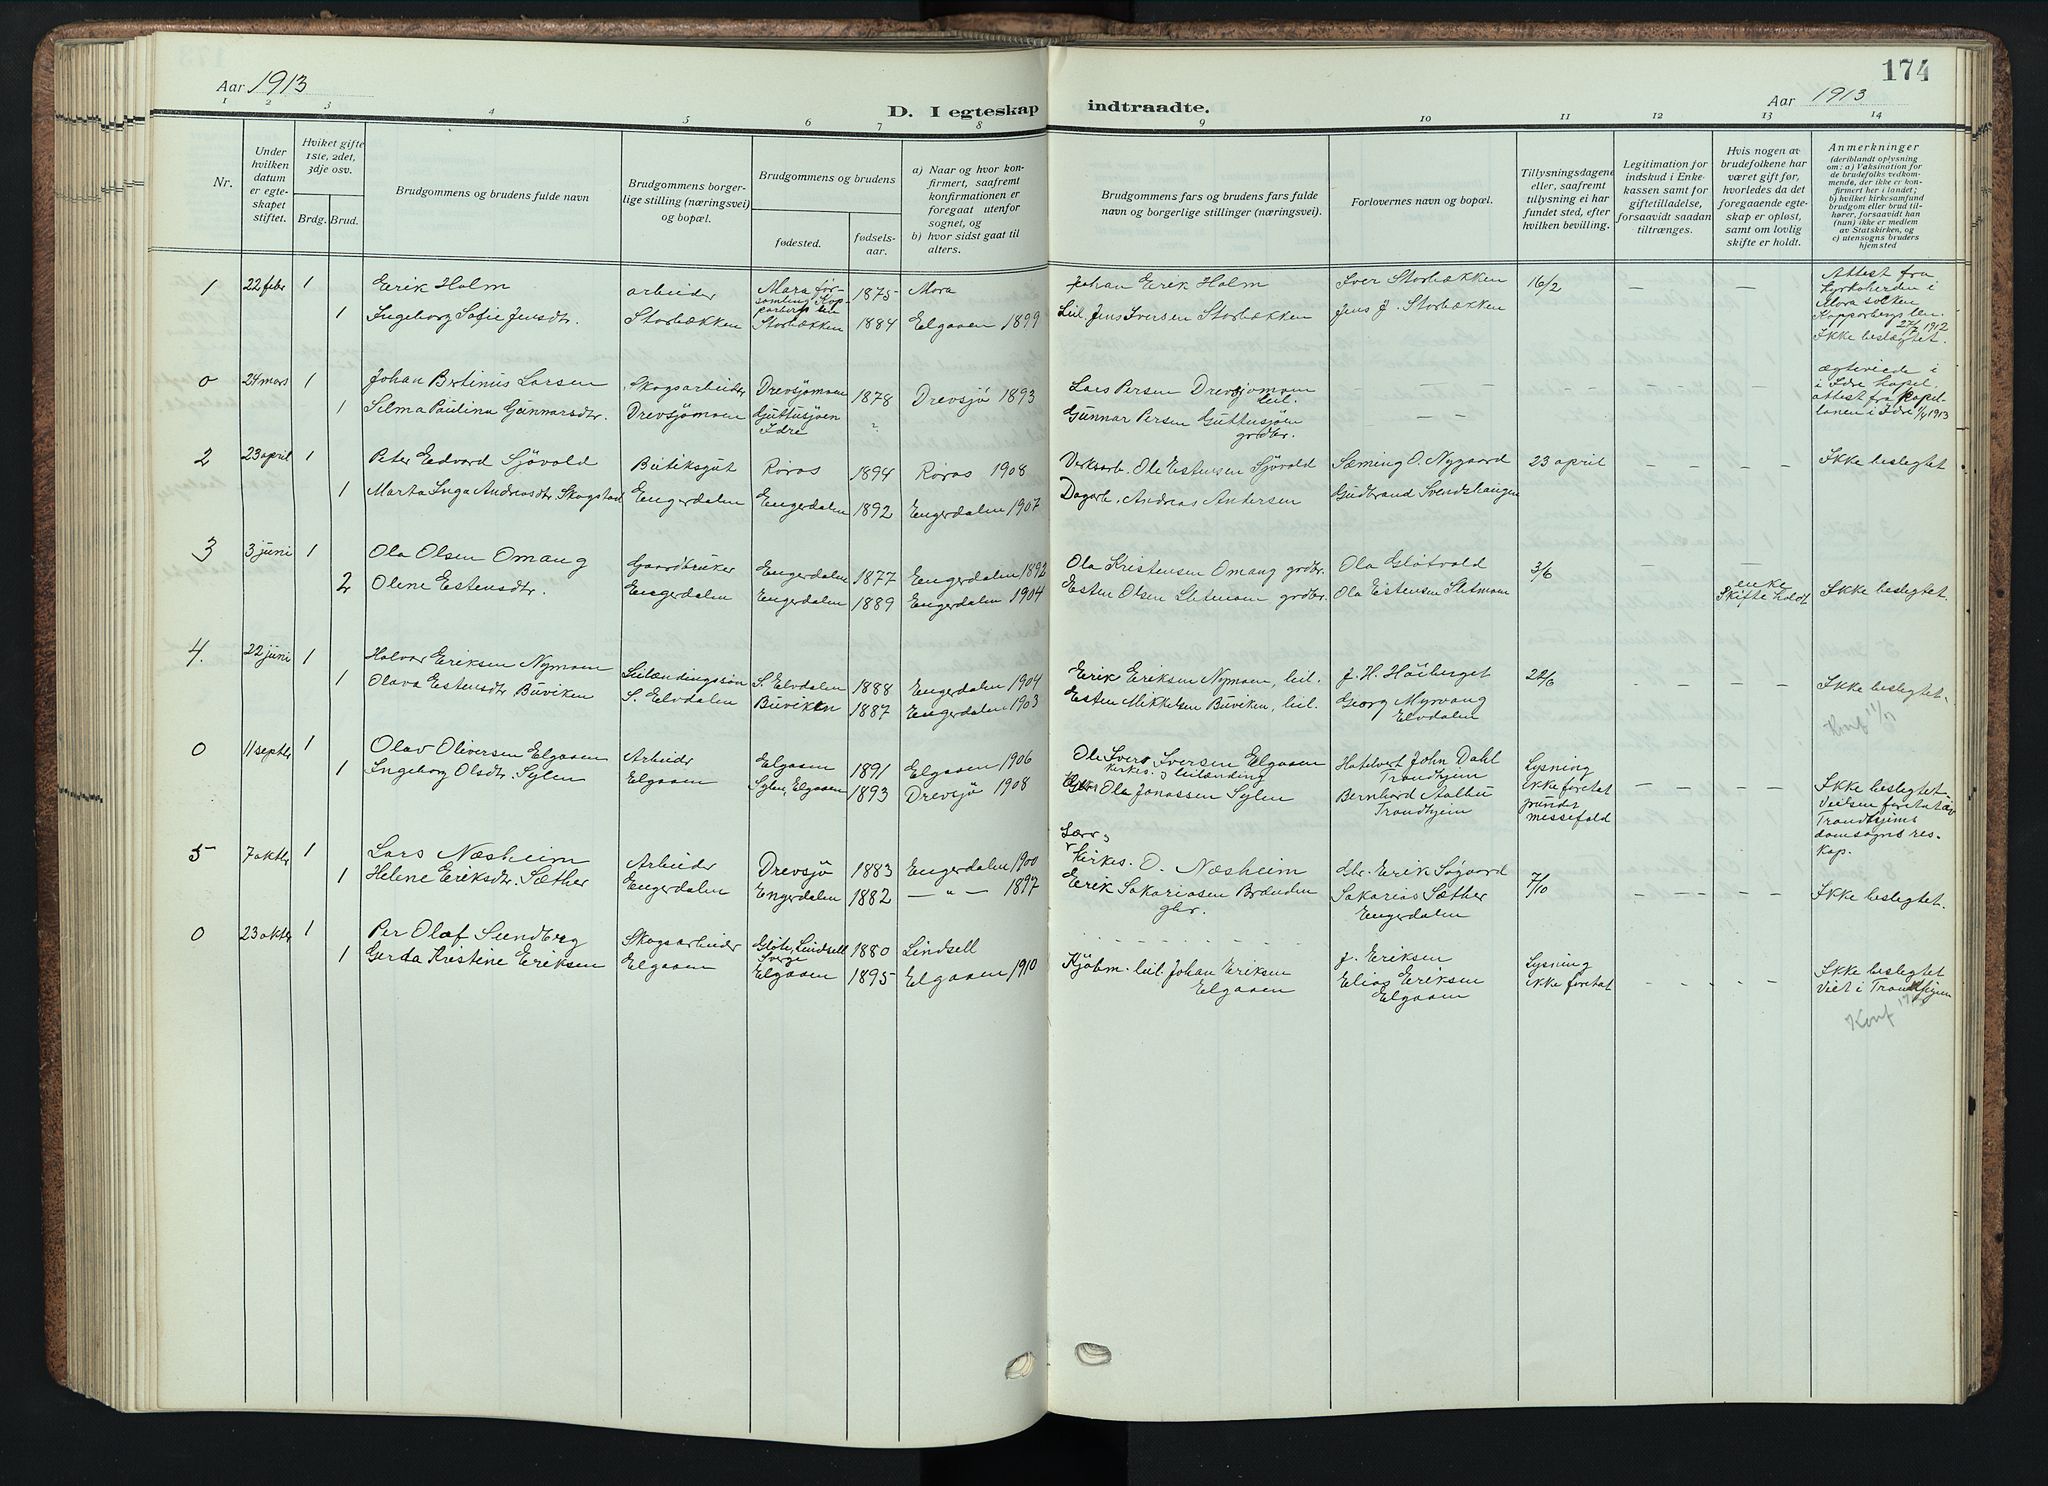 174
Aar 1913
D. I egteskap indtraadte.
Aar 1913
1 2 3 4 5 6 7 8 9 10 11 12 13 14
Nr.
Under hvilken datum er egteskapet stiftet.
Hviket gifte 1ste, 2det, 3dje osv.
Brdg. Brud.
Brudgommens og brudens fulde navn
Brudgommens borgerlige stilling (næringsvei) og bopæl.
Brudgommens og brudens
fødested.
fødselsaar.
a) Naar og hvor konfirmert, saafremt konfirmationen er foregaat utenfor sognet, og
b) hvor sidst gaat til alters.
Brudgommens fars og brudens fars fulde navn og borgerlige stillinger (næringsvei).
Forlovernes navn og bopæl.
Tillysningsdagene eller, saafremt tillysning ei har fundet sted, efter hvilken bevilling.
Legitimation for indskud i Enkekassen samt for giftetilladelse, forsaavidt saadan tiltrænges.
Hvis nogen av brudefolkene har været gift før, hvorledes da det foregaaende egteskap er opløst, samt om lovlig skifte er holdt.
Anmerkninger
(deriblandt oplysning om: a) Vaksination for de brudefolks vedkommende, der ikke er konfirmert her i landet; b) hvilket kirkesamfund brudgom eller brud tilhører, forsaavidt han (hun) ikke er medlem av Statskirken, og c) utensogns bruders hjemsted
1 22 febr 1 Erik Holm arbeider Mora församling Kopparbergs län 1875 Mora Johan Erik Holm Iver Storbækken 16/2 – –
1 Ingeborg Sofie Jensdtr. Storbækken Storbækken 1884 Elgaaen 1899 Leil. Jens Iversen Storbækken Jens J. Storbækken
Attest fra Kyrkoherden i Mora socken Kopparbergs len 27/2 1912 Ikke beslægtet.
0 24 mars 1 Johan Bertinus Larsen Skogsarbeider Drevsjømoen 1878 Drevsjö 1893 Lars Persen Drevsjomoen leil.
1 Selma Paulina Gunnarsdtr. Drevsjömoen Guttusjöen Idre ? Gunnar Persen Guttusjöen grdbr. – –
ægteviede i Idre kapel. attest fra kapellanen i Idre 1/4 1913
2 23 april 1 Peter Edvard Sjövold Butiksgut Röros 1894 Röros 1908 Verksarb. Ole Estensen Sjövold Sæming O. Nygaard 23 april – – – – Ikke beslegtet
1 Marta Inga Andreasdtr. Skogstad Engerdalen Engerdalen 1892 Engerdalen 1907 Dagarb. Andreas Andersen Gudbrand Svendshaugen
3 3 juni 1 Ola Olsen Omang Gaardbruker Engerdalen 1877 Engerdalen 1892 Ola Kristensen Omang grdbr. Ola Glötvold 3/6 –
2 Oline Estensdtr. Engerdalen Engerdalen 1889 Engerdalen 1904 Esten Olsen Sletmoen grdbr. Ola Estensen Sletmoen enke Skifte holdt Ikke beslegtet.
4. 22 juni 1 Halvor Eriksen Nymoen Leilændingssön S. Elvdalen 1888 Engerdalen 1904 Erik Eriksen Nymoen, leil. J. H. Höiberget 22/6 – – – –
1 Olava Estensdtr Buviken S. Elvdalen Buviken 1887 Engerdalen 1903 Esten Mikkelsen Buviken, leil. Georg Myrvang Elvdalen Ikke beslegtet.
Konf
0 11 septbr 1 Olav Oliversen Elgaaen Arbeider Elgaaen 1891 Elgaaen 1906 Ole Ivers Iversen Elgaaen Kirkes. & leilænding Hotelvert John Dahl Trondhjem
1 Ingeborg Olsdtr. Sylen Elgaaen Sylen, Elgaaen 1893 Drevsjö 1908 Ola Jonassen Sylen Bernhard Aalbu Trondhjem
Lysning ikke foretat grundet messefald – – – –
Ikke beslegtet. Vielsen foretat av Trondhjems domsogns reskap.
5 7 oktbr 1 Lars Næsheim Arbeider Drevsjö 1883 Engerdalen 1900 Lærer & Kirkes. O. Næsheim Gbr. Erik Søgaard 7/10
1 Helene Eriksdtr. Sæther Engerdalen Engerdalen 1882 – " – 1897 Erik Sakariasen Brænden gbr. Sakarias Sæther Engerdalen – – – – Ikke beslegtet.
0 23 oktbr 1 Per Olof Sundberg Skogsarbeider Glöte, Lindsell Sverge 1880 Lindsell - - - - - - J. Eriksen
1 Gerda Kristine Eriksen Elgaaen Elgaaen 1895 Elgaaen 1910 Kjöbm. leil. Johan Eriksen Elgaaen Elias Eriksen Elgaaen
Lysning ikke foretat – – – –
Ikke beslegtet Viet i Trondhjem
Konf